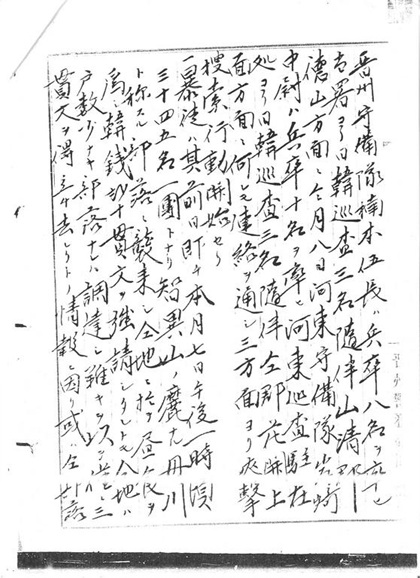 晋州守備隊楠本伍長ハ兵卒八名ヲ
古署ヨリ日韓巡査三名随伴山清郡
徳山方面ニ今月八日河東守備隊
中尉ハ兵卒十名ヲ率ヒ河東巡査駐在
処ヨリ日韓巡査三名随伴仝郡花開上
面方面ニ何レモ連絡ヲ通シ三方面ヨリ夾撃
捜索行動開始セリ
一暴徒ハ其前日即チ本月七日午後一時頃
三十四五名一團トナリ智異山ノ麓ナル丹川
ト称スル部落ニ襲来シ仝地ニ於テ昼食ヲ
為シ韓銭数十貫文ヲ強請シタルモ仝地ハ
戸数少ナキ部落ナレハ調達シ難キ 三
貫文ヲ得 去レリトノ情報ニ因リ或ハ仝部落